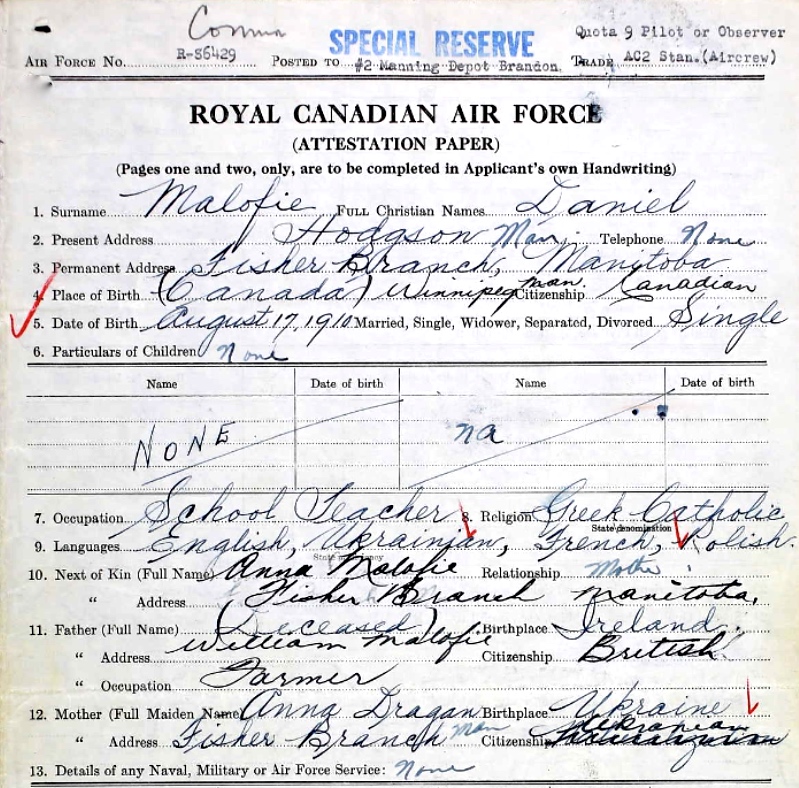 Comm
SPECIAL RESERVE Quota 9 Pilot or Observer
AIR FORCE No. R-86429 POSTED TO #2 Manning Depot Brandon. TRADE AC2 Stan.(Aircrew)
ROYAL CANADIAN AIR FORCE
(ATTESTATION PAPER)
(Pages one and two, only, are to be completed in Applicant's own Handwriting)
1. Surname Malofie FULL Christian Names Daniel
2. Present Address Hodgson Man. Telephone None
3. Permanent Address Fisher Branch, Manitoba
4. Place of Birth (Canada) Winnipeg Man. Citizenship Canadian
5. Date of Birth August 17, 1910 Married, Single, Widower, Separated, Divorced Single
6. Particulars of Children None
Name Date of birth Name Date of birth
NONE na
7. Occupation School Teacher 8. Religion Greek Catholic
State denomination
9. Languages English, Ukrainian, French, Polish.
State fluency
10. Next of Kin (Full Name) Anna Malofie Relationship Mother
" Address Fisher Branch Manitoba.
11. Father (Full Name) (Deceased) Birthplace Ireland.
William Malofie
" Address Citizenship British
" Occupation Farmer
12. Mother (Full Maiden Name) Anna Dragan Birthplace Ukraine
" Address Fisher Branch Man Citizenship Ukranian
13. Details of any Naval, Military or Air Force Service: None